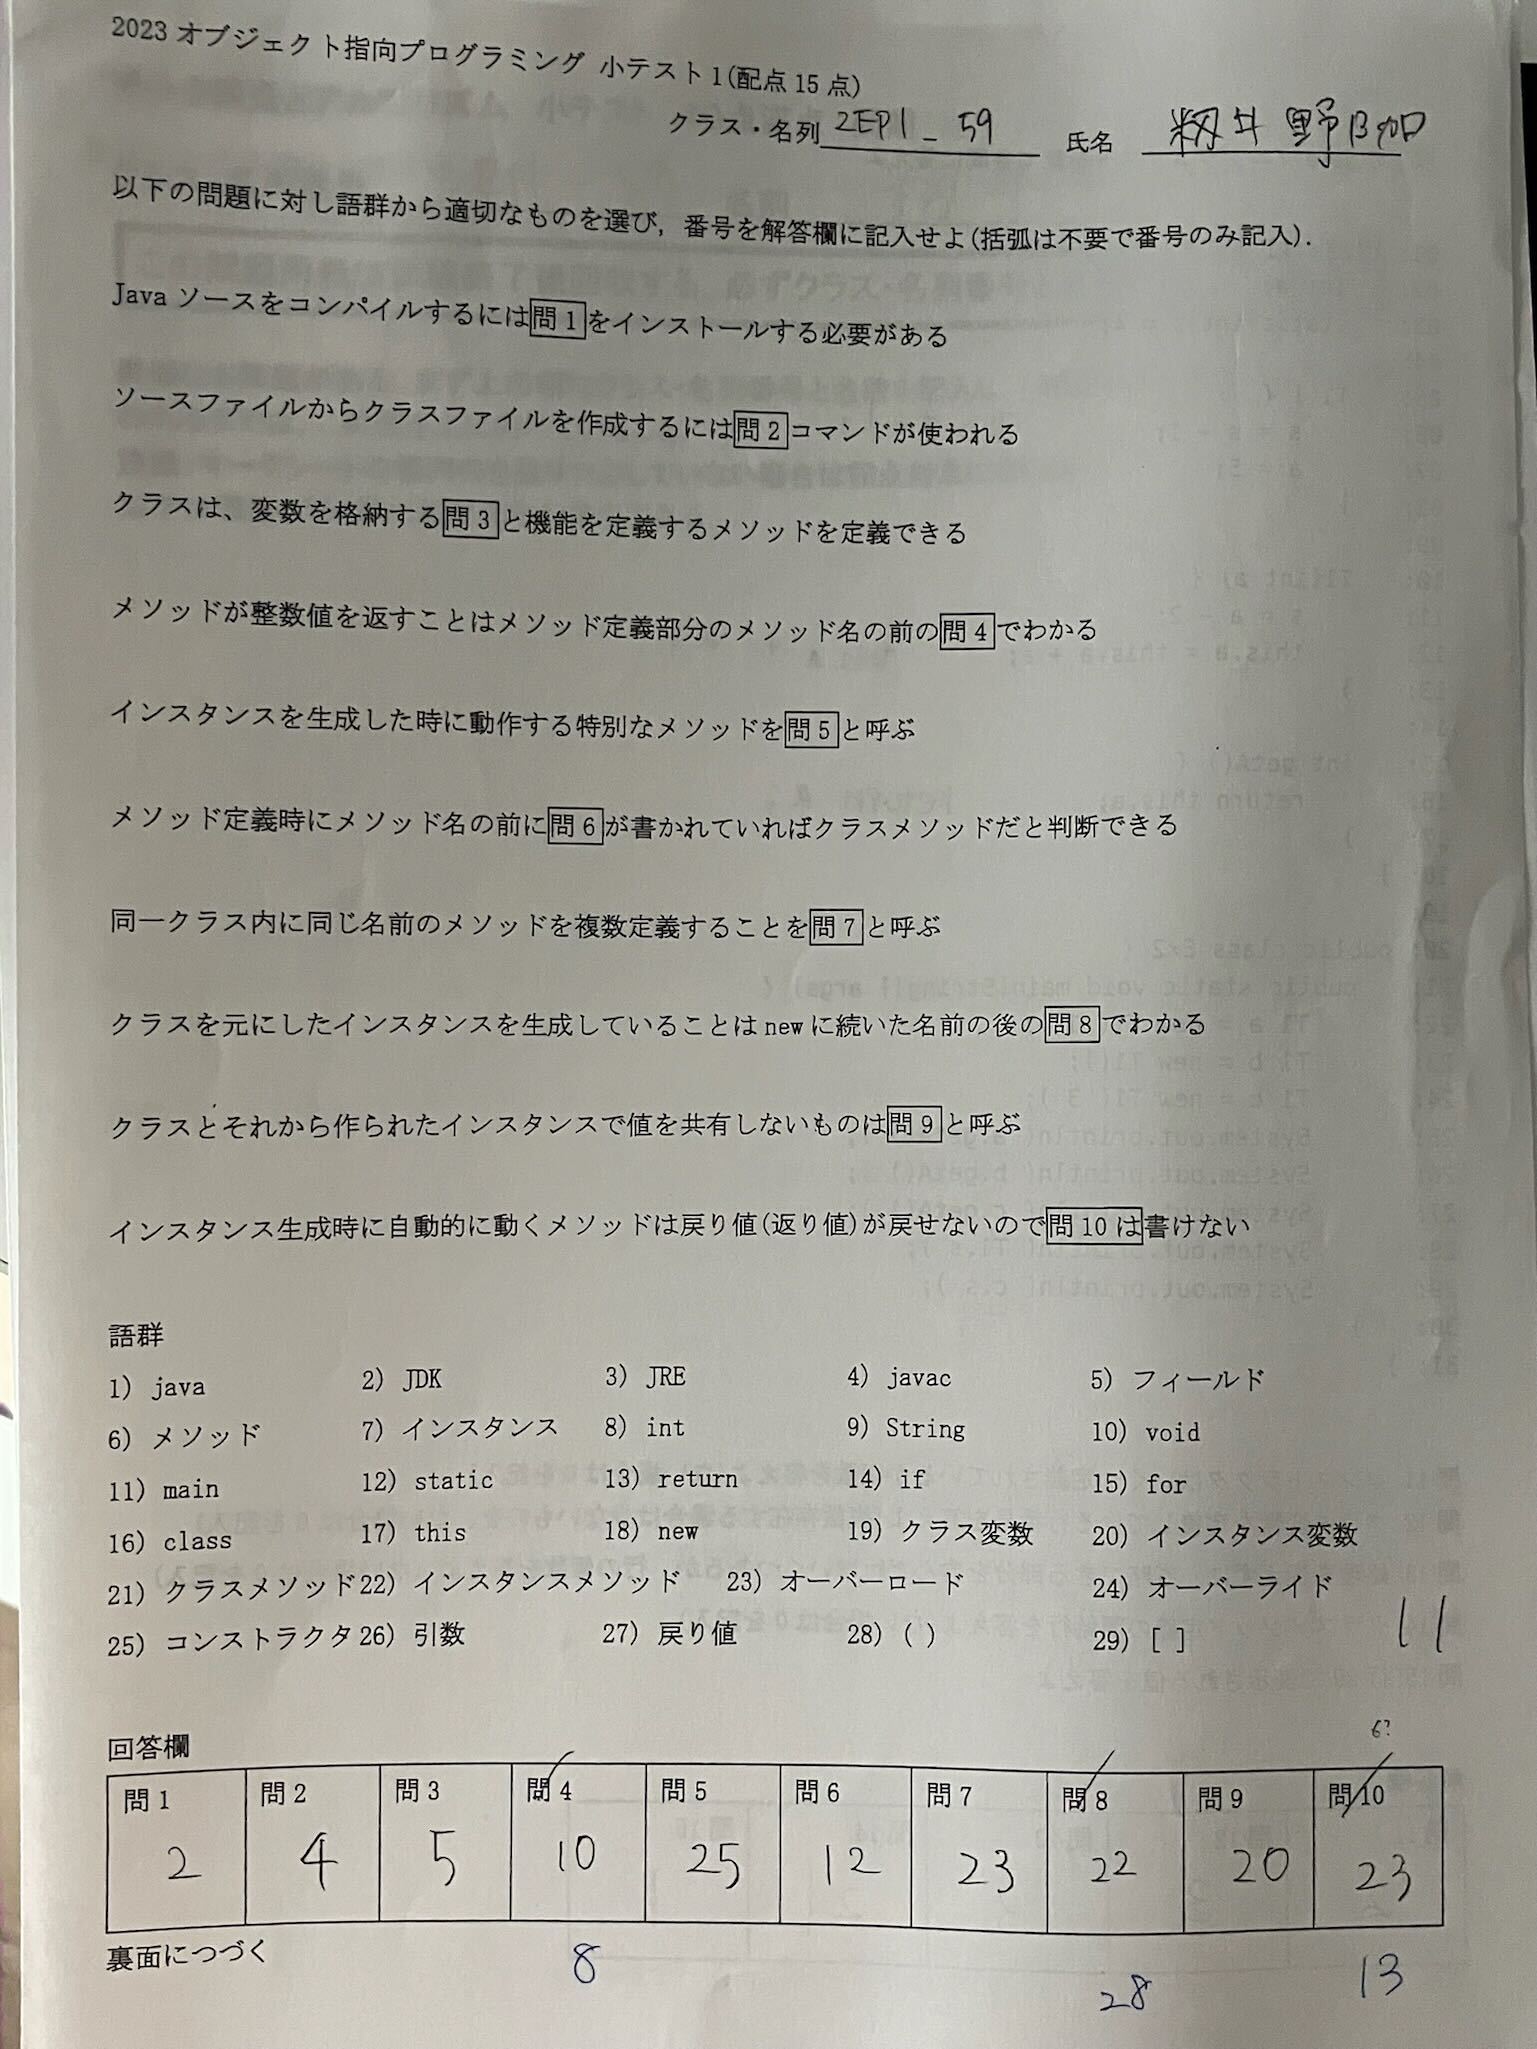 2023 オブジェクト指向プログラミング 小テスト1(配点 15 点)
クラス・名列 2EP1_59 氏名 籾井 野乃加
以下の問題に対し語群から適切なものを選び，番号を解答欄に記入せよ(括弧は不要で番号のみ記入).
Java ソースをコンパイルするには問1をインストールする必要がある
ソースファイルからクラスファイルを作成するには問2コマンドが使われる
クラスは、変数を格納する問3と機能を定義するメソッドを定義できる
メソッドが整数値を返すことはメソッド定義部分のメソッド名の前の問4でわかる
インスタンスを生成した時に動作する特別なメソッドを問5と呼ぶ
メソッド定義時にメソッド名の前に問6が書かれていればクラスメソッドだと判断できる
同一クラス内に同じ名前のメソッドを複数定義することを問7と呼ぶ
クラスを元にしたインスタンスを生成していることは new に続いた名前の後の問8でわかる
クラスとそれから作られたインスタンスで値を共有しないものは問9と呼ぶ
インスタンス生成時に自動的に動くメソッドは戻り値(返り値)が戻せないので問10は書けない
語群
1) java 2) JDK 3) JRE 4) javac 5) フィールド
6) メソッド 7) インスタンス 8) int 9) String 10) void
11) main 12) static 13) return 14) if 15) for
16) class 17) this 18) new 19) クラス変数 20) インスタンス変数
21) クラスメソッド 22) インスタンスメソッド 23) オーバーロード 24) オーバーライド
25) コンストラクタ 26) 引数 27) 戻り値 28) ( ) 29) [ ]
11
6?
回答欄
問1 問2 問3 問4 問5 問6 問7 問8 問9 問10
2 4 5 10 25 12 23 22 20 23
裏面につづく
8 28 13